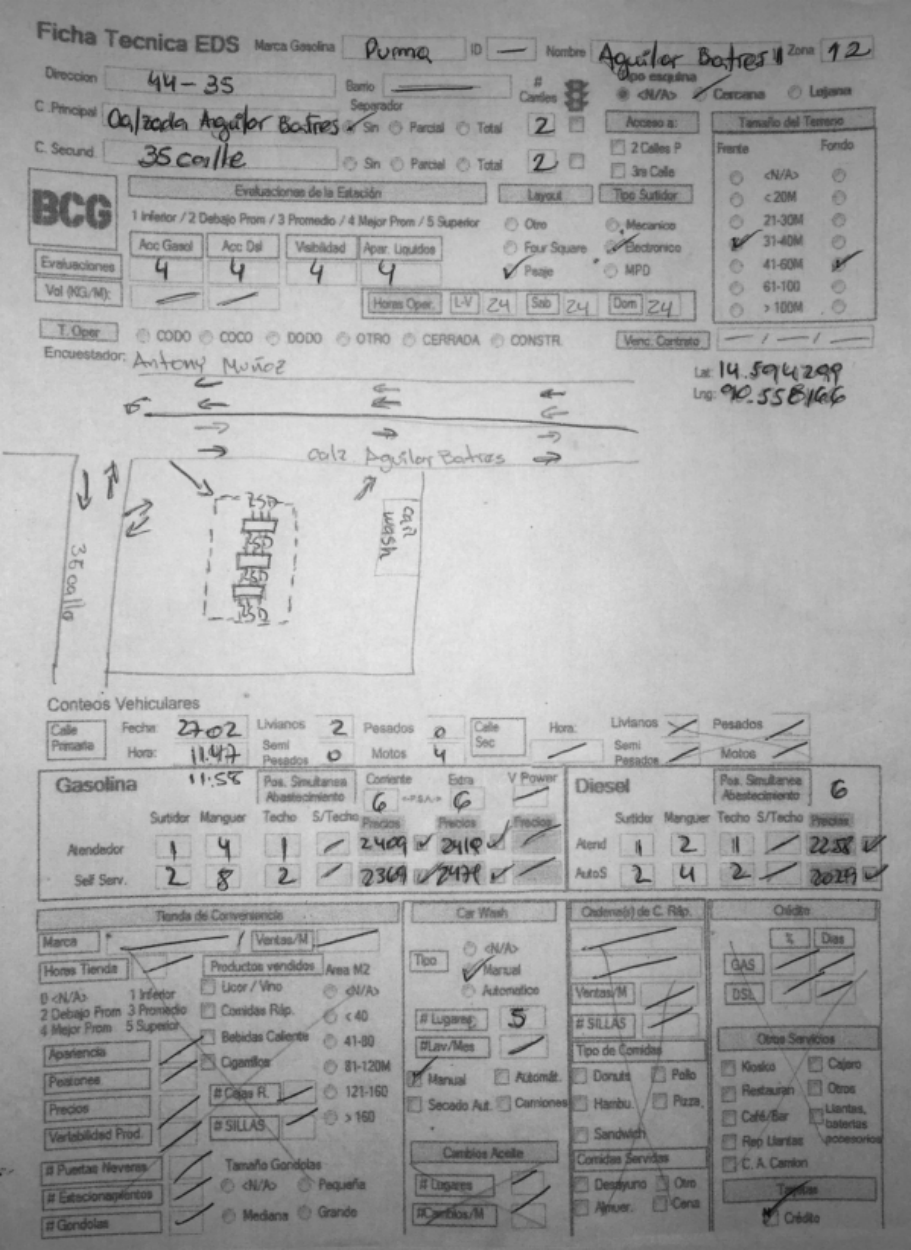 Ficha Tecnica EDS Marca Gasolina Puma ID — Nombre Aguilar Batres II Zona 12
Direccion 44-35 Barrio # Carriles Tipo esquina <N/A> Cercana Lejana
C. Principal Calzada Aguilar Batres Separador Sin Parcial Total 2 Acceso a: Tamaño del Terreno
C. Secund. 35 calle Sin Parcial Total 2 2 Calles P 3ra Calle Frente Fondo
BCG
Evaluaciones de la Estación Layout Tipo Surtidor
1 Inferior / 2 Debajo Prom / 3 Promedio / 4 Mejor Prom / 5 Superior
Acc Gasol Acc Dsl Visibilidad Apar. Liquidos
Evaluaciones 4 4 4 4
Vol (KG/M):
Otro Mecanico
Four Square Electronico
Peaje MPD
<N/A>
< 20M
21-30M
31-40M
41-60M
61-100
> 100M
Horas Oper. L-V 24 Sab 24 Dom 24
T. Oper CODO COCO DODO OTRO CERRADA CONSTR. Venc. Contrato — / — / —
Encuestador: Antony Muñoz
Lat: 14.594299
Lng: 90.558166
Calz Aguilar Batres
35 calle
2SD
2SD
2SD
2SD
car wash
Conteos Vehiculares
Calle Primaria Fecha: 2702 Livianos 2 Pesados 0 Calle Sec Hora: Livianos Pesados
Hora: 11:47 Semi Pesados 0 Motos 4 Semi Pesados Motos
11:58
Gasolina Pos. Simultanea Abastecimiento Corriente 6 <-P.S.A.-> Extra 6 V Power
Surtidor Manguer Techo S/Techo Precios Precios Precios
Atendedor 1 4 1 2409 2419
Self Serv. 2 8 2 2369 2479
Diesel Pos. Simultanea Abastecimiento 6
Surtidor Manguer Techo S/Techo Precios
Atend 1 2 1 2258
AutoS 2 4 2
Tienda de Conveniencia
Marca Ventas/M
Horas Tienda Productos vendidos Area M2
0 <N/A> 1 Inferior
2 Debajo Prom 3 Promedio
4 Mejor Prom 5 Superior
Licor / Vino
Comidas Ráp.
Bebidas Caliente
Cigarrillos
# Cajas R.
# SILLAS
<N/A>
< 40
41-80
81-120M
121-160
> 160
Apariencia
Peatones
Precios
Variabilidad Prod.
# Puertas Neveras
# Estacionamientos
# Gondolas
Tamaño Gondolas
<N/A> Pequeña
Mediana Grande
Car Wash
Tipo <N/A>
Manual
Automatico
# Lugares 5
#Lav/Mes
Manual Automát.
Secado Aut. Camiones
Cambios Aceite
# Lugares
#Cambios/M
Cadena(s) de C. Ráp.
Ventas/M
# SILLAS
Tipo de Comidas
Donuts Pollo
Hambu. Pizza.
Sandwich
Comidas Servidas
Desayuno Otro
Almuer. Cena
Crédito
% Dias
GAS
DSL
Otros Servicios
Kiosko Cajero
Restauran Otros
Café/Bar Llantas, baterias accesorios
Rep Llantas
C. A. Camion
Tarjetas
Crédito